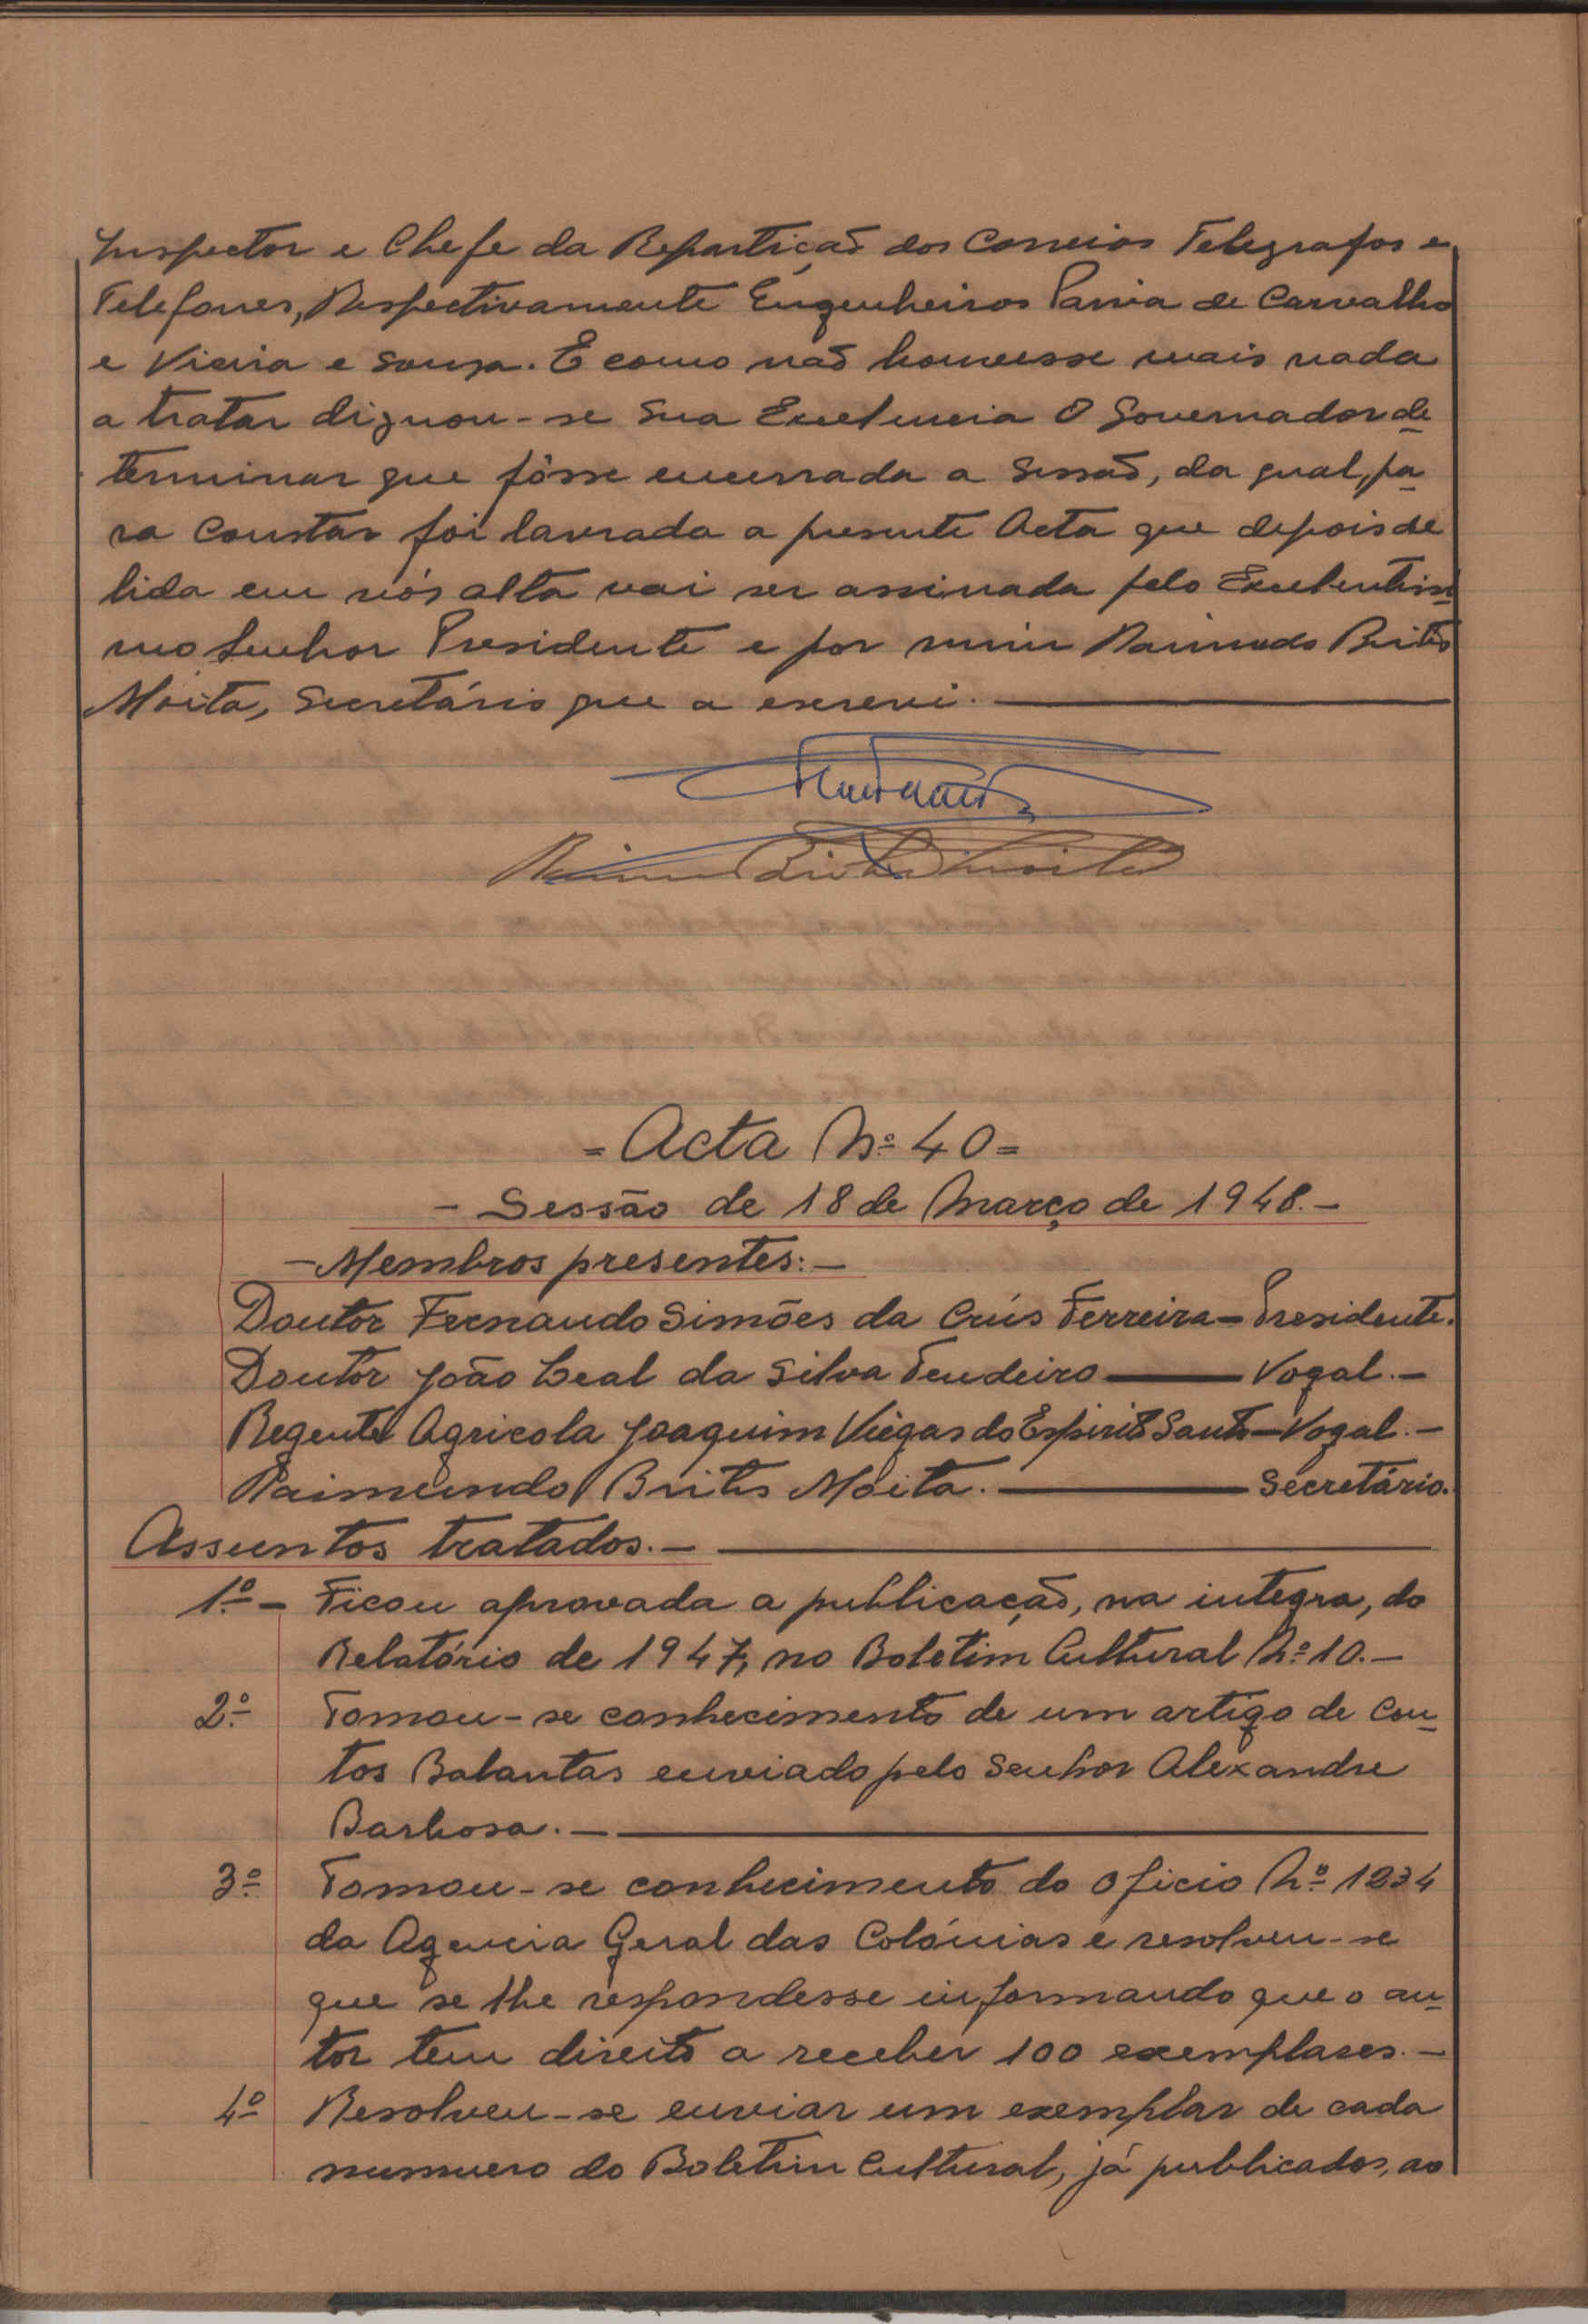 Inspector e Chefe da Repartição dos Correios Telegrafos e
Telefones, Respectivamente Engenheiros Paiva de Carvalho
e Vieira e Sousa. E como não houvesse mais nada
a tratar dignou-se Sua Excelencia O Governador de
terminar que fôsse encerrada a Sessão, da qual, pa
ra constar foi lavrada a presente Acta que depois de
lida em vós alta vai ser assinada pelo Excelentissi
mo Senhor Presidente e por mim Raimundo Brites
Moita, Secretário que a escrevi.
= Acta Nº 40 =
- Sessão de 18 de Março de 1948.-
- Membros presentes:-
Doutor Fernando Simões da Crús Ferreira - Presidente.
Doutor João Leal da Silva Tendeiro — Vogal.-
Regente Agricola Joaquim Viegas do Espirito Santo - Vogal.-
Raimundo Brites Moita. — Secretário.
Assuntos tratados.-
1º- Ficou aprovada a publicação, na integra, do
Relatório de 1947, no Boletim Cultural Nº 10.-
2º- Tomou-se conhecimento de um artigo de Con
tos Balantas enviado pelo Senhor Alexandre
Barbosa.-
3º- Tomou-se conhecimento do Oficio Nº 1234
da Agencia Geral das Colónias e resolveu-se
que se lhe respondesse informando que o au
tor tem direito a receber 100 exemplares.-
4º Resolveu-se enviar um exemplar de cada
numuero do Boletim Cultural, já publicados, ao